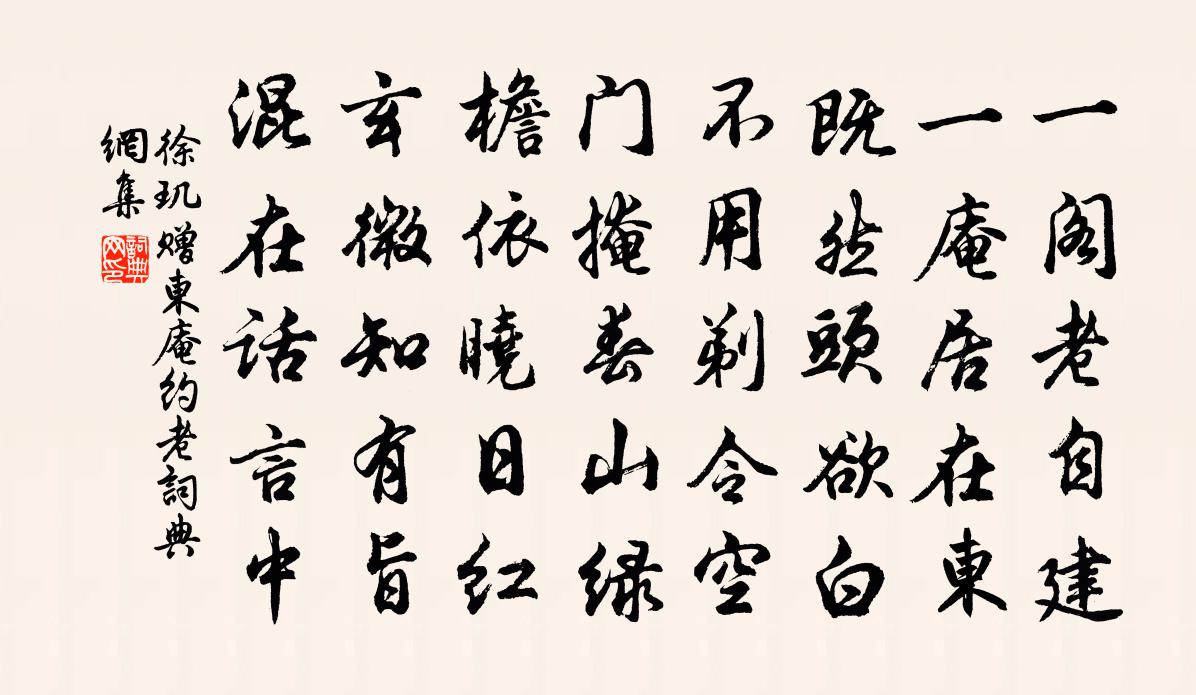 一阁老自建
一庵居在東
既然頭欲白
不用剃令空
门掩春山绿
檐依曉日红
玄微知有旨
混在话言中
徐玑 赠東庵约老詞典
網集
詞典网印